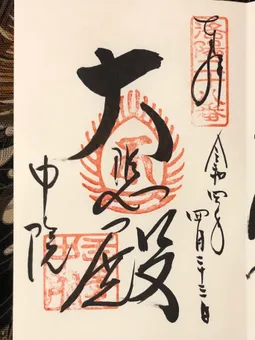 奉拝
令和四年
四月二十三日
大悲殿
中院